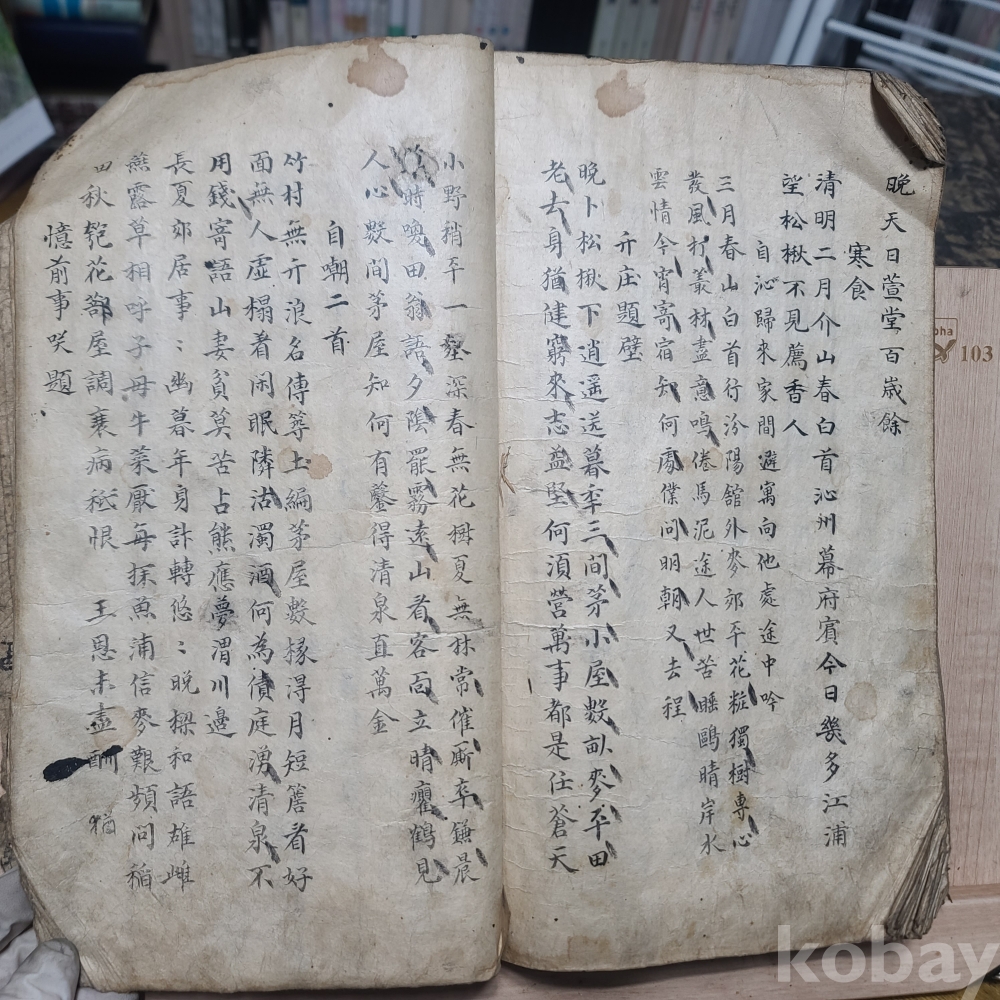 晩天日萱堂百歲餘
寒食
清明二月介山春白首沁州幕府賓今日幾多江浦
望松楸不見薦香人
自沁歸來家間避寓向他處途中吟
三月春山白首行汾陽舘外麥郊平花粧獨樹專心
發風打叢林盡意鳴倦馬泥途人世苦睡鷗晴岸水
雲情今宵寄宿知何處僕問明朝又去程
亓庄題壁
晩卜松楸下逍遥送暮年三間茅小屋數畝麥平田
老去身猶健窮來志益堅何湏營萬事都是任蒼天
小野稍平一壑深春無花樹夏無林常催廝卒鎌晨
時喚田翁語夕陰罷霧遠山看客面立晴癯鶴見
人心數間茅屋知何有鑿得清泉直萬金
自嘲二首
竹村無亓浪名傳等上編茅屋數椽淂月短簷看好
面無人虛榻看闲眠隣沽濁酒何為債庭湧清泉不
用錢寄語山妻貧莫苦占熊應夢渭川邊
長夏郊居事﹕幽暮年身計轉悠﹕晩樑和語雄雌
燕露草相呼子母牛菜厭每採魚浦信麥艱頻问稲
田秋匏花蔀屋調衰病秪恨 王恩未盡酬 猶
憶前事咲題
103
kobay